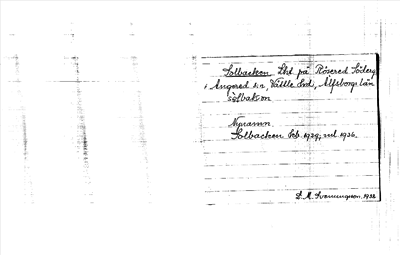 Solbacken, Lht på Rösered Söderg.
i Angered sn, Vättle hd, Älfsborgs län
sòlbakan
Nynamn.
Solbacken beb. 1929; uel. 1936.
D. A. Svenningson. 1938